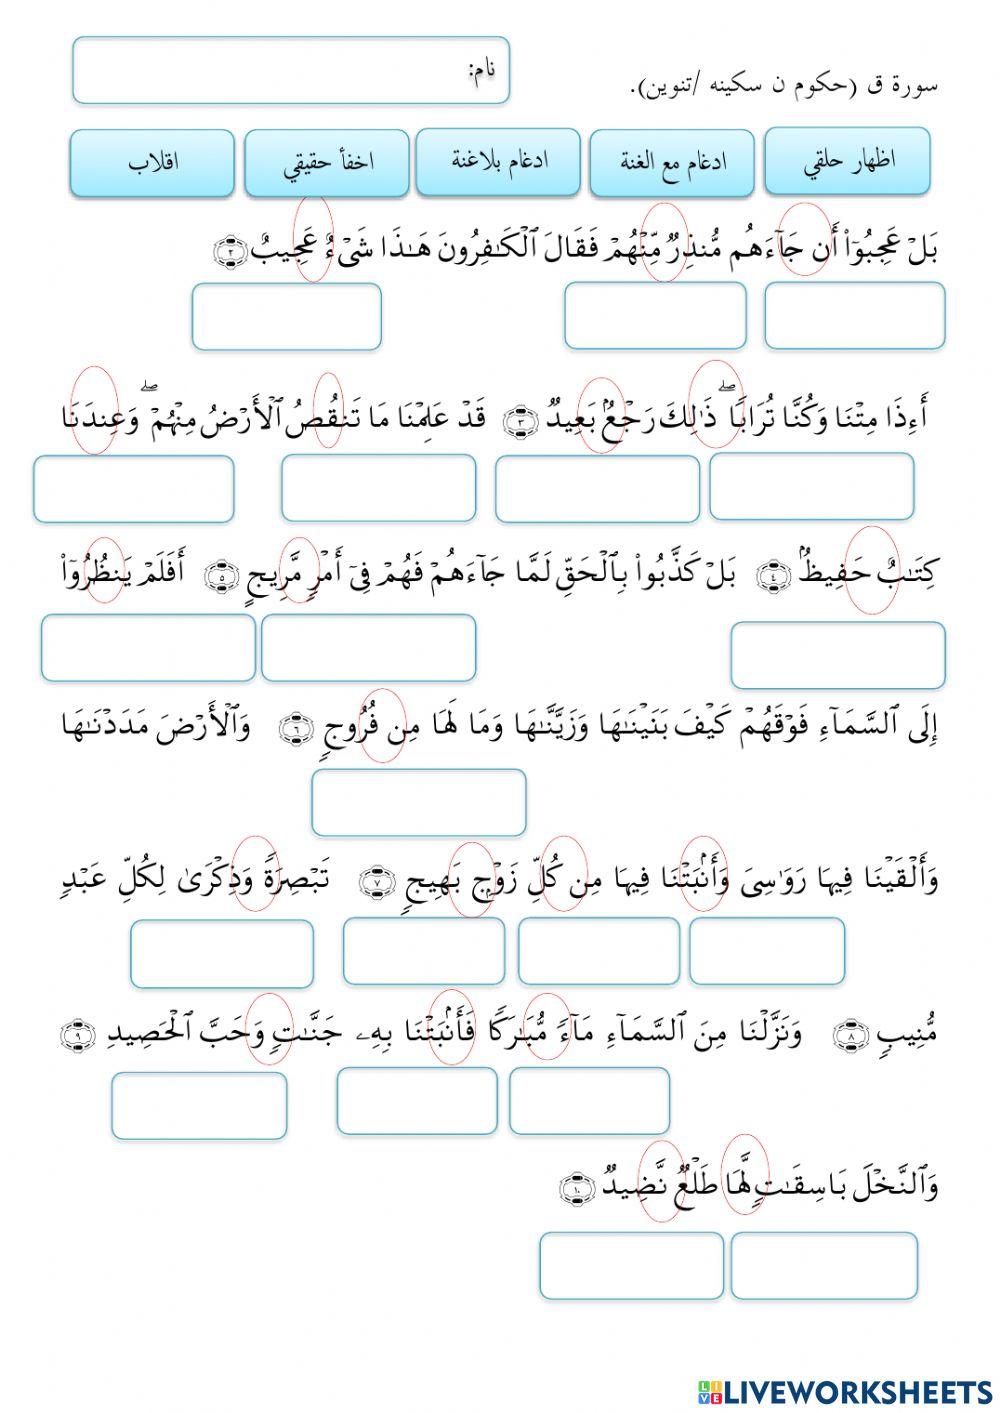 نام:
سورة ق (حكوم ن سكينه /تنوين).
اظهار حلقي
ادغام مع الغنة
ادغام بلاغنة
اخفأ حقيقي
اقلاب
بَلْ عَجِبُوٓا۟ أَن جَآءَهُم مُّنذِرٌ مِّنْهُمْ فَقَالَ ٱلْكَـٰفِرُونَ هَـٰذَا شَىْءٌ عَجِيبٌ ٢
أَءِذَا مِتْنَا وَكُنَّا تُرَابًا ۖ ذَٰلِكَ رَجْعٌۢ بَعِيدٌ ٣ قَدْ عَلِمْنَا مَا تَنقُصُ ٱلْأَرْضُ مِنْهُمْ ۖ وَعِندَنَا
كِتَـٰبٌ حَفِيظٌۢ ٤ بَلْ كَذَّبُوا۟ بِٱلْحَقِّ لَمَّا جَآءَهُمْ فَهُمْ فِىٓ أَمْرٍ مَّرِيجٍ ٥ أَفَلَمْ يَنظُرُوٓا۟
إِلَى ٱلسَّمَآءِ فَوْقَهُمْ كَيْفَ بَنَيْنَـٰهَا وَزَيَّنَّـٰهَا وَمَا لَهَا مِن فُرُوجٍ ٦ وَٱلْأَرْضَ مَدَدْنَـٰهَا
وَأَلْقَيْنَا فِيهَا رَوَٰسِىَ وَأَنۢبَتْنَا فِيهَا مِن كُلِّ زَوْجٍۭ بَهِيجٍ ٧ تَبْصِرَةً وَذِكْرَىٰ لِكُلِّ عَبْدٍ
مُّنِيبٍ ٨ وَنَزَّلْنَا مِنَ ٱلسَّمَآءِ مَآءً مُّبَـٰرَكًا فَأَنۢبَتْنَا بِهِۦ جَنَّـٰتٍ وَحَبَّ ٱلْحَصِيدِ ٩
وَٱلنَّخْلَ بَاسِقَـٰتٍ لَّهَا طَلْعٌ نَّضِيدٌ ١٠
LIVEWORKSHEETS